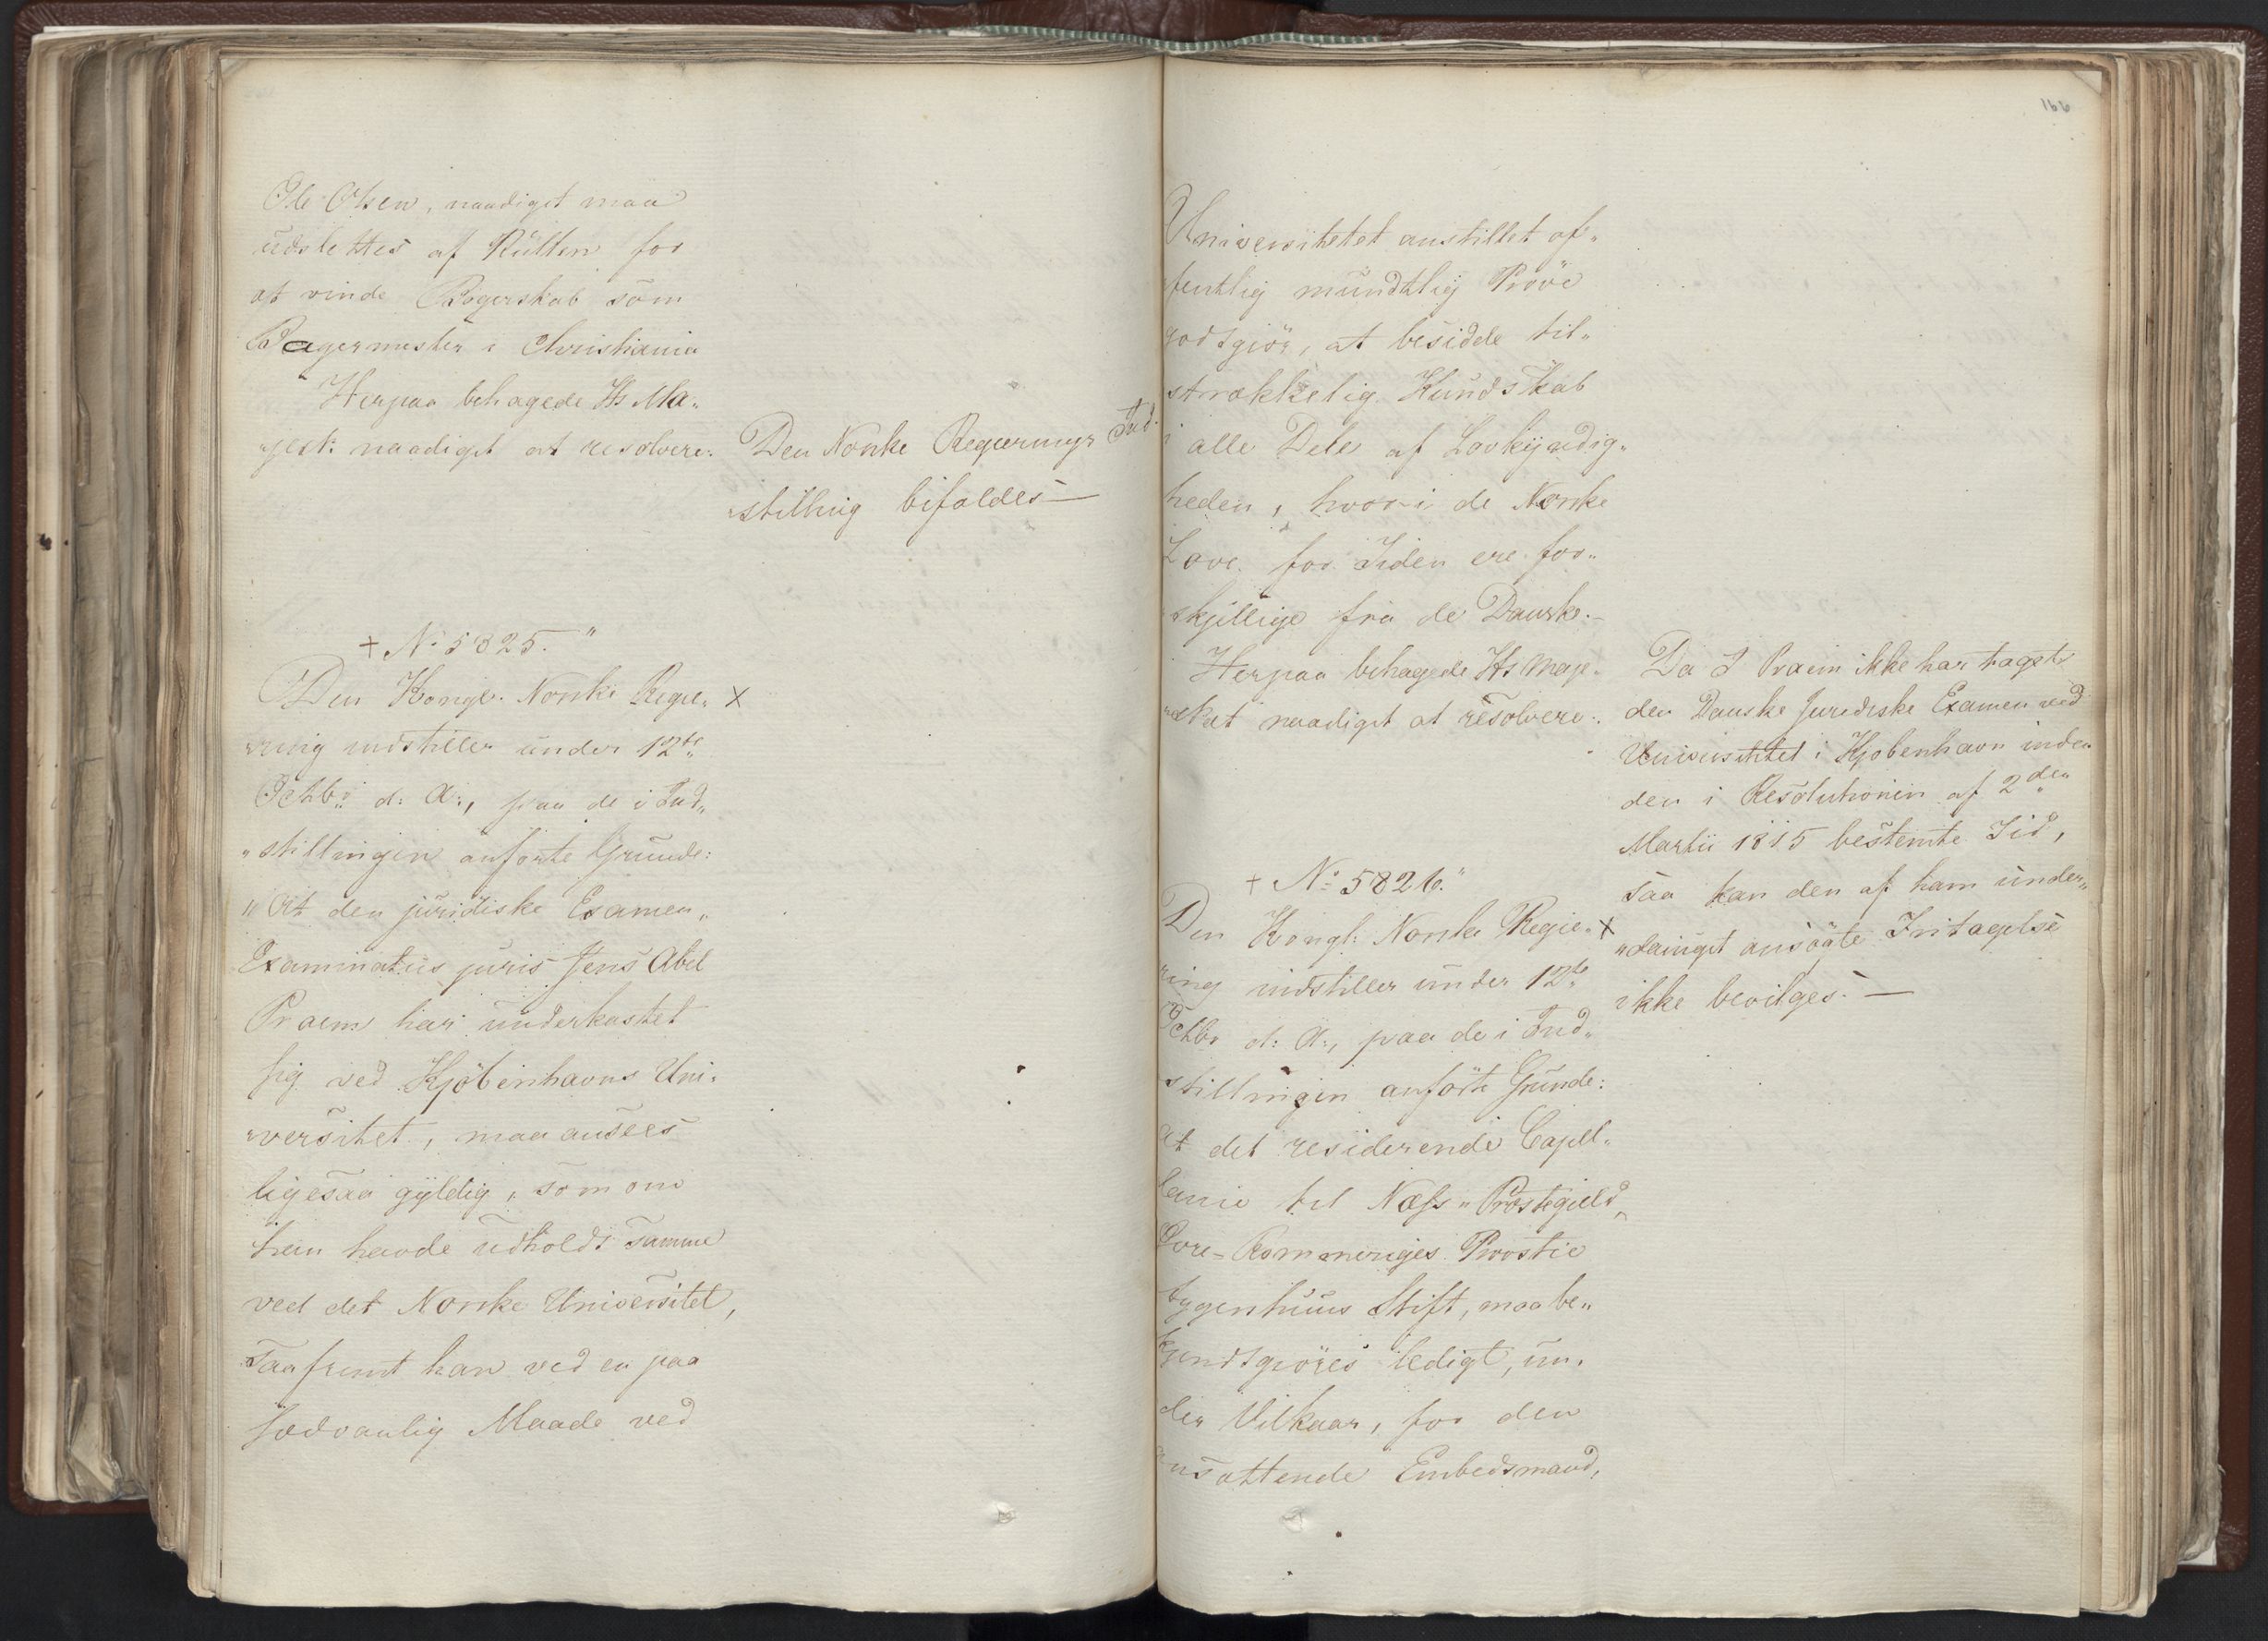 Ole Olsen, naadigst maa
udslettes af Rullen for
at vinde Borgerskab som
Bagermester i Christiania
Herpaa behagede Hs Ma„
jest: naadigst at resolvere:
Den Norske Regjerings Ind„
„stilling bifaldes—
+ No 5825."
Den Kongl. Norske Regie„ X
„ring indstiller under 12te
Octbr d: A:, paa de i Ind„
„stillingen anførte Grunde:
„At den juridiske Examen„
Examinatus juris Jens Abel
Praem har underkastet
sig ved Kjøbenhavns Uni„
„versitet, maa ansees
ligesaa gyldig, som om
han havde udholdt samme
ved det Norske Universitet,
saafremt han ved en paa
sædvanlig Maade ved
166
Universitetet anstillet of„
fentlig mundtlig Prøve
godtgiør, at besidde til„
strækkelig Kundskab
i alle Dele af Lovkyndig„
heden, hvori de Norske
Love for Tiden ere for„
skjellige fra de Danske.—
Herpaa behagede Hs Maje„
„stæt naadigst at resolvere:
Da J Praem ikke har taget
den Danske Juridiske Examen ved
Universitetet i Kjøbenhavn inden
den i Resolutionen af 2den
Martii 1815 bestemte Tid,
saa kan den af ham under„
„danigst ansøgte Fritagelse
ikke bevilges.—
+ No 5826."
Den Kongl: Norske Regie„ X
ring indstiller under 12te
Octbr d: A:, paa de i Ind„
stillingen anførte Grunde:
at det residerende Capel„
lanie til Næss Præstegield,
Romeriges Provstie
Aggershuus Stift, maa be„
kjendtgiøres ledigt, un„
der Vilkaar, for den
ansættende Embedsmand,